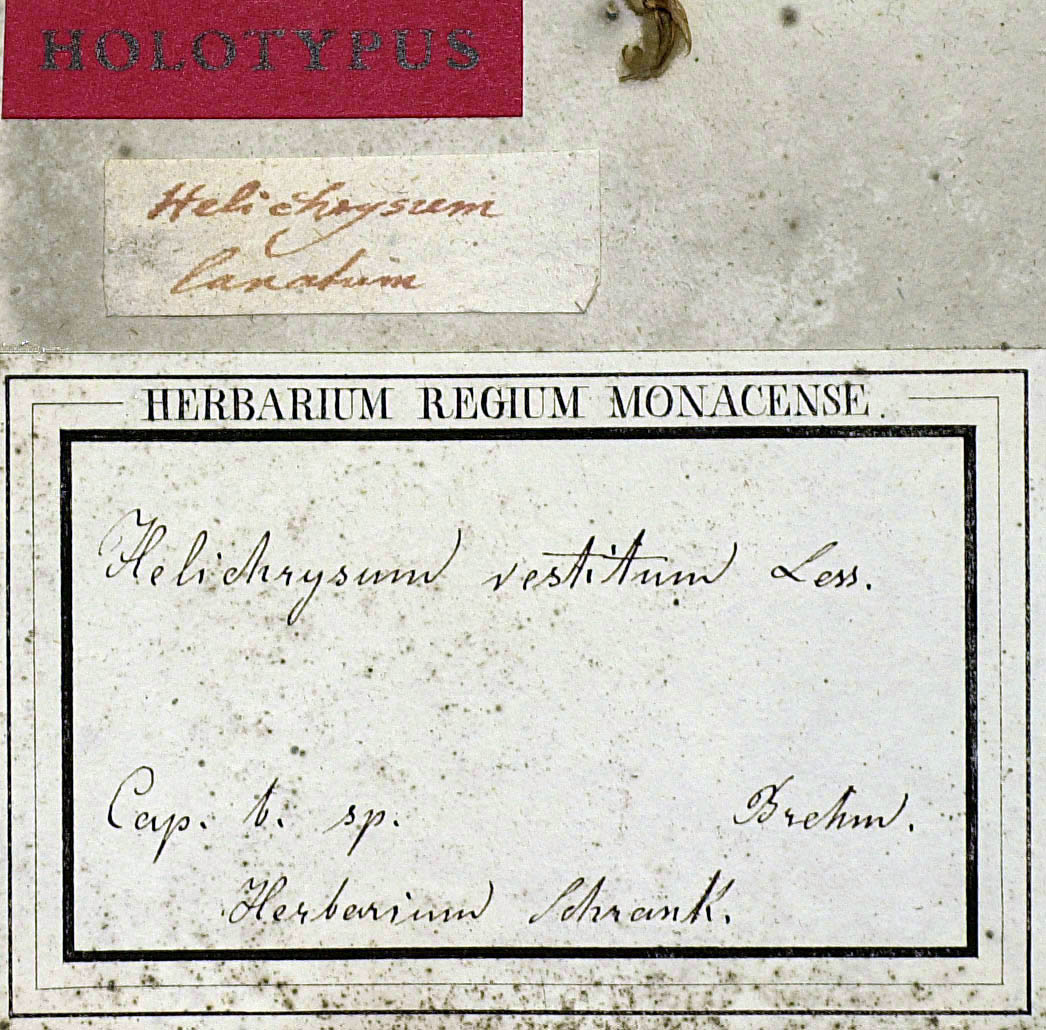 HOLOTYPUS
Helichrysum
lanatum
HERBARIUM REGIUM MONACENSE.
Helichrysum vestitum Less.
Cap. b. sp. Brehm.
Herbarium Schrank.